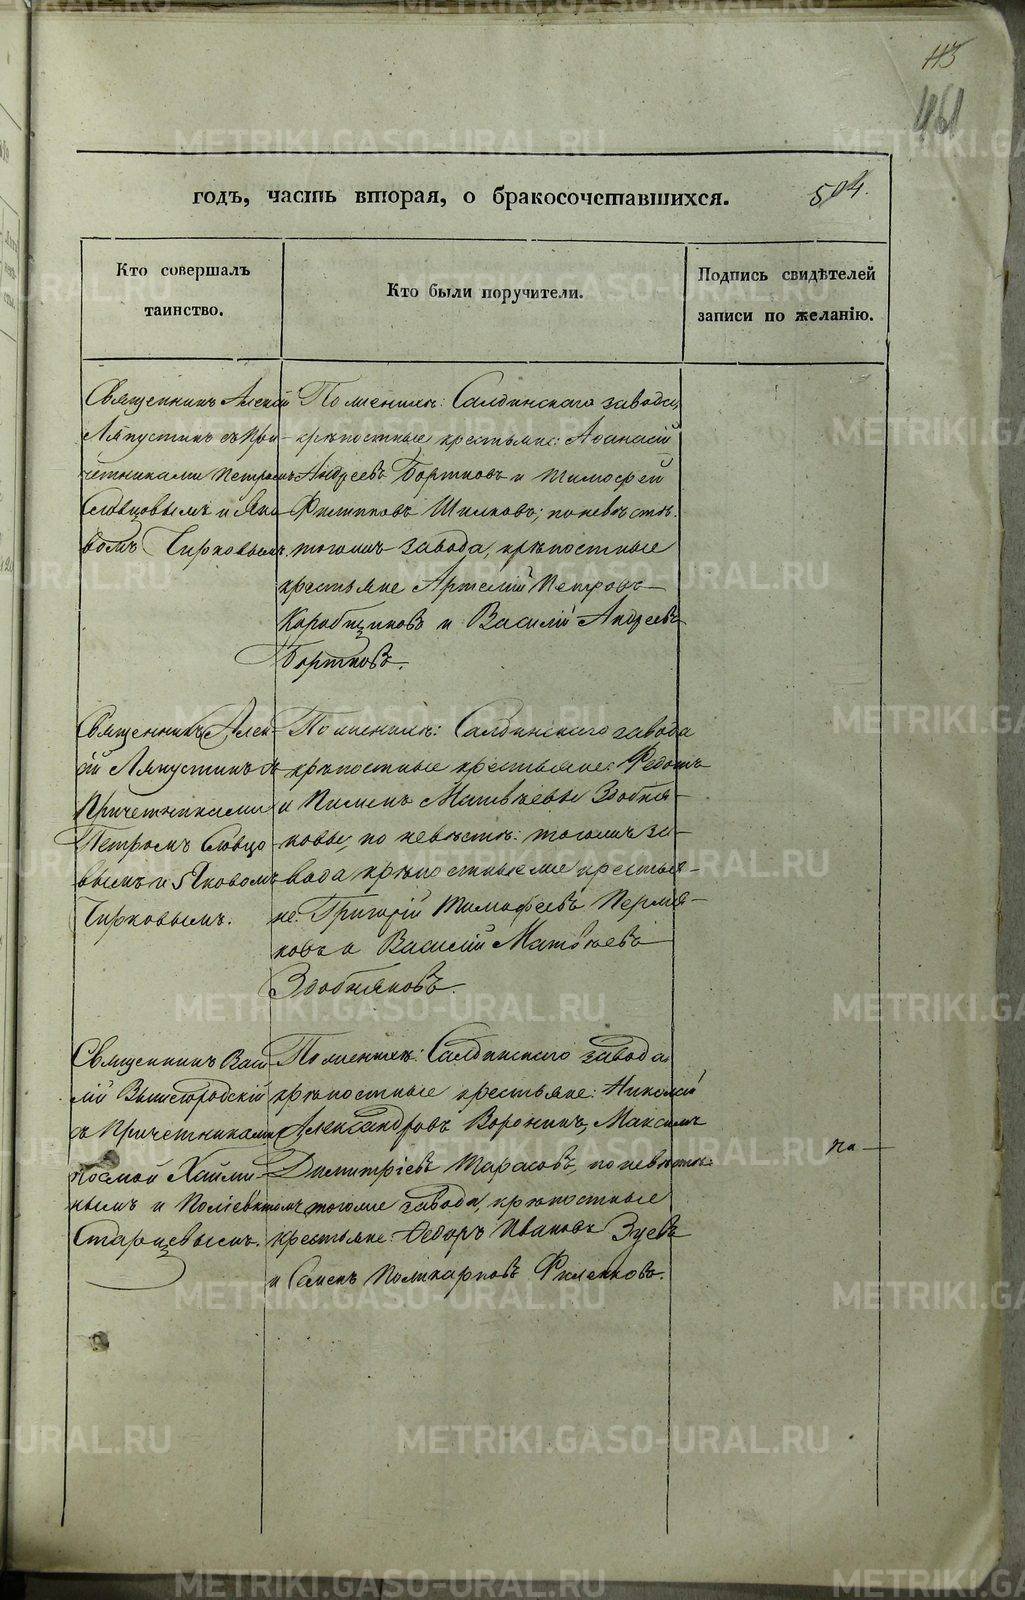 113
461
годъ, часть вторая, о бракосочетавшихся.
504.
Кто совершалъ
таинство.
Кто были поручители.
Подпись свидѣтелей
записи по желанію.
Священникъ Алексій
Ляпустинъ съ при-
четниками Петромъ
Словцовымъ и Яко-
вомъ Чирковымъ.
По женихѣ: Салдинскаго завода,
крѣпостные крестьяне: Аѳанасій
Андреевъ Бортновъ и Тимофей
Филипповъ Шилковъ; по невѣстѣ:
тогожъ завода, крѣпостные
крестьяне Артемій Петровъ
Коробщиковъ и Василій Андреевъ
Бортновъ.
Священникъ Алек-
сій Ляпустинъ съ
причетниками
Петромъ Словцо-
вымъ и Яковомъ
Чирковымъ.
По женихѣ: Салдинскаго завода
крѣпостные крестьяне: Федотъ
и Пименъ Матвѣевы Зобня-
ковы, по невѣстѣ: тогожъ за-
вода крѣпостные крестья-
не: Григорій Тимофеевъ Пермя-
ковъ и Василій Матвѣевъ
Зобняковъ.
Священникъ Васи-
лій Вышегородскій
съ причетниками
Космой Хайми-
нымъ и Поліевктомъ
Старцевымъ.
По женихѣ: Салдинскаго завода
крѣпостные крестьяне: Николай
Александровъ Воронинъ, Максимъ
Димитріевъ Тарасовъ, по невѣстѣ:
тогоже завода, крѣпостные
крестьяне: Ѳедоръ Ивановъ Зуевъ
и Семенъ Поликарповъ Филенковъ.
METRIKI.GASO-URAL.RU